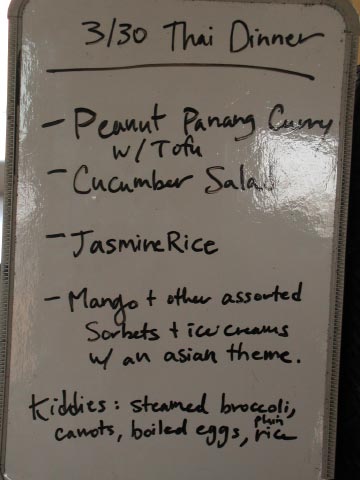 3/30 Thai Dinner
- Peanut Panang Curry
w/ Tofu
- Cucumber Salad
- Jasmine Rice
- Mango + other assorted
Sorbets + ice creams
w/ an asian theme.
Kiddies: steamed broccoli,
carrots, boiled eggs, plain rice